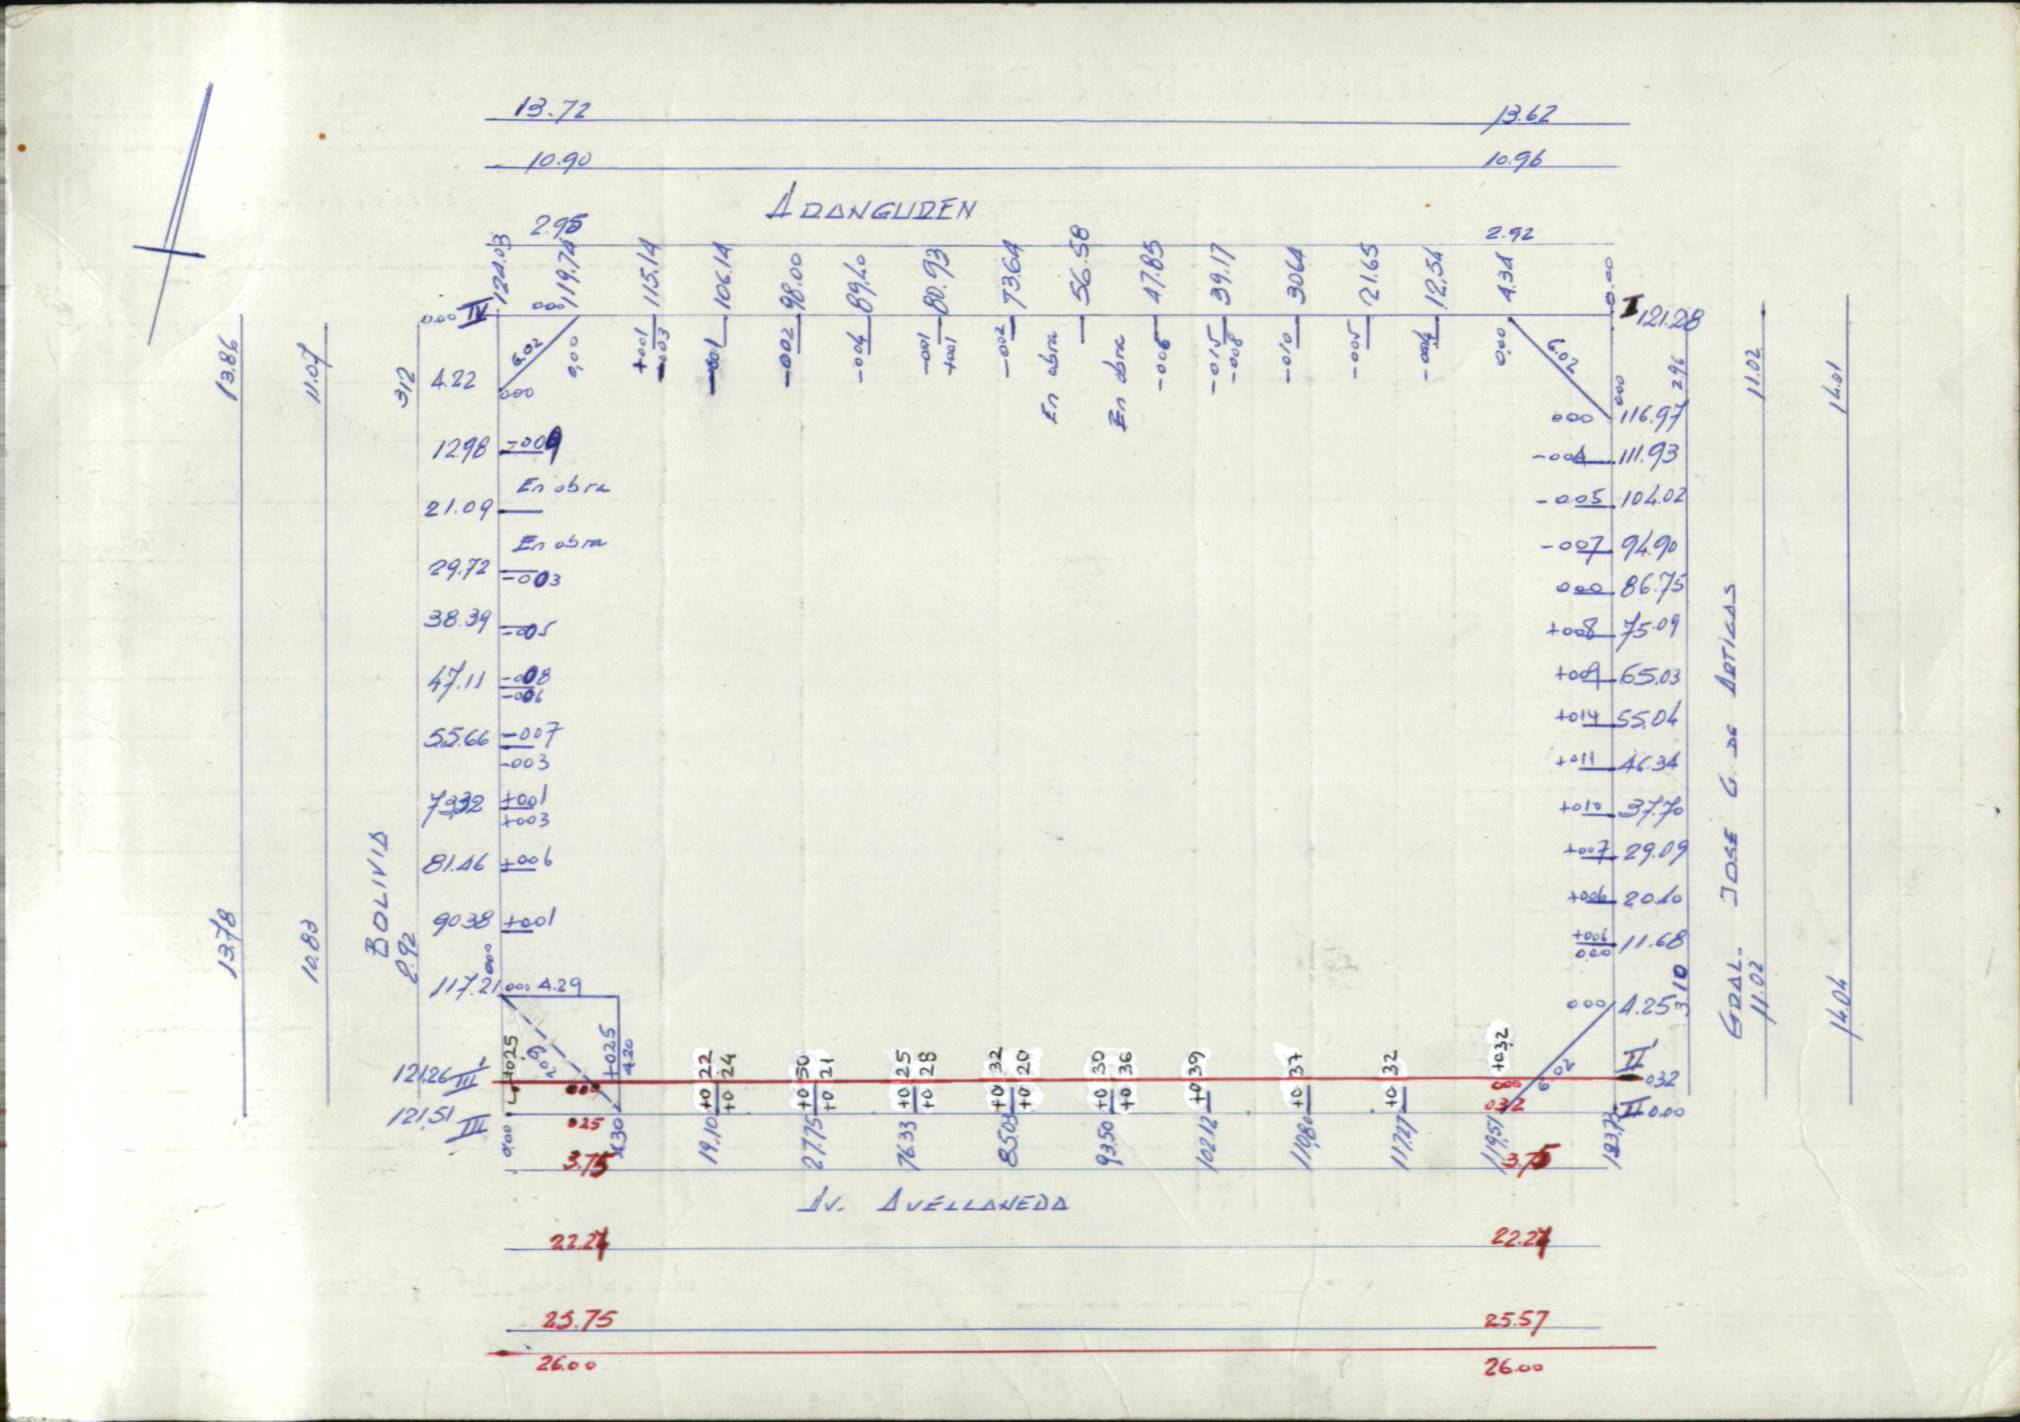 13.72 13.62
10.90 10.96
ARANGUREN
2.95 2.92
124.03 119.74 115.14 106.14 98.00 89.40 80.93 73.64 56.58 47.85 39.17 30.64 21.65 12.54 4.34 0.00
0.00 IV 000 I 121.28
6.02 0,00 +001 -003 -001 -002 -004 -001 +001 -002 En obra En obra -006 -015 -008 -010 -005 -004 0,00 6.02 000
13.86 11.07 312 296 11.02 14.01
4.22 000
000 116.97
12.98
-004 111.93
En obra
21.09
-005 104.02
En obra
-007 94.90
29.72 -003
000 86.75
38.39 -005
+008 75.09
47.11 -008 -006
+009 65.03
55.66 -007 -003
+014 55.04
+011 46.34
73.32 +001 +003
+010 37.70
81.46 +006
+007 29.09
+006 20.40
90.38 +001
+006 000 11.68
BOLIVIA
GRAL. JOSE G. DE ARTIGAS
13.78 10.83 2.92 000
117.21 000 4.29
000 4.25 3.10 11.02 14.04
+025 6.02 +025 4.20
+0 22 +0 24 +0 50 +0 21 +0 25 +0 28 +0 32 +0 20 +0 30 +0 36 +0 39 +0 37 +0 32 +032
6.02
121.26 III' 000 000 II' 032
121.51 III 025 032 II 0.00
0.00 4.30 19.10 27.75 76.33 85.03 93.50 102.12 110.80 117.27 119.51 123.73
3.75 3.75
AV. AVELLANEDA
22.24 22.24
25.75 25.57
26.00 26.00